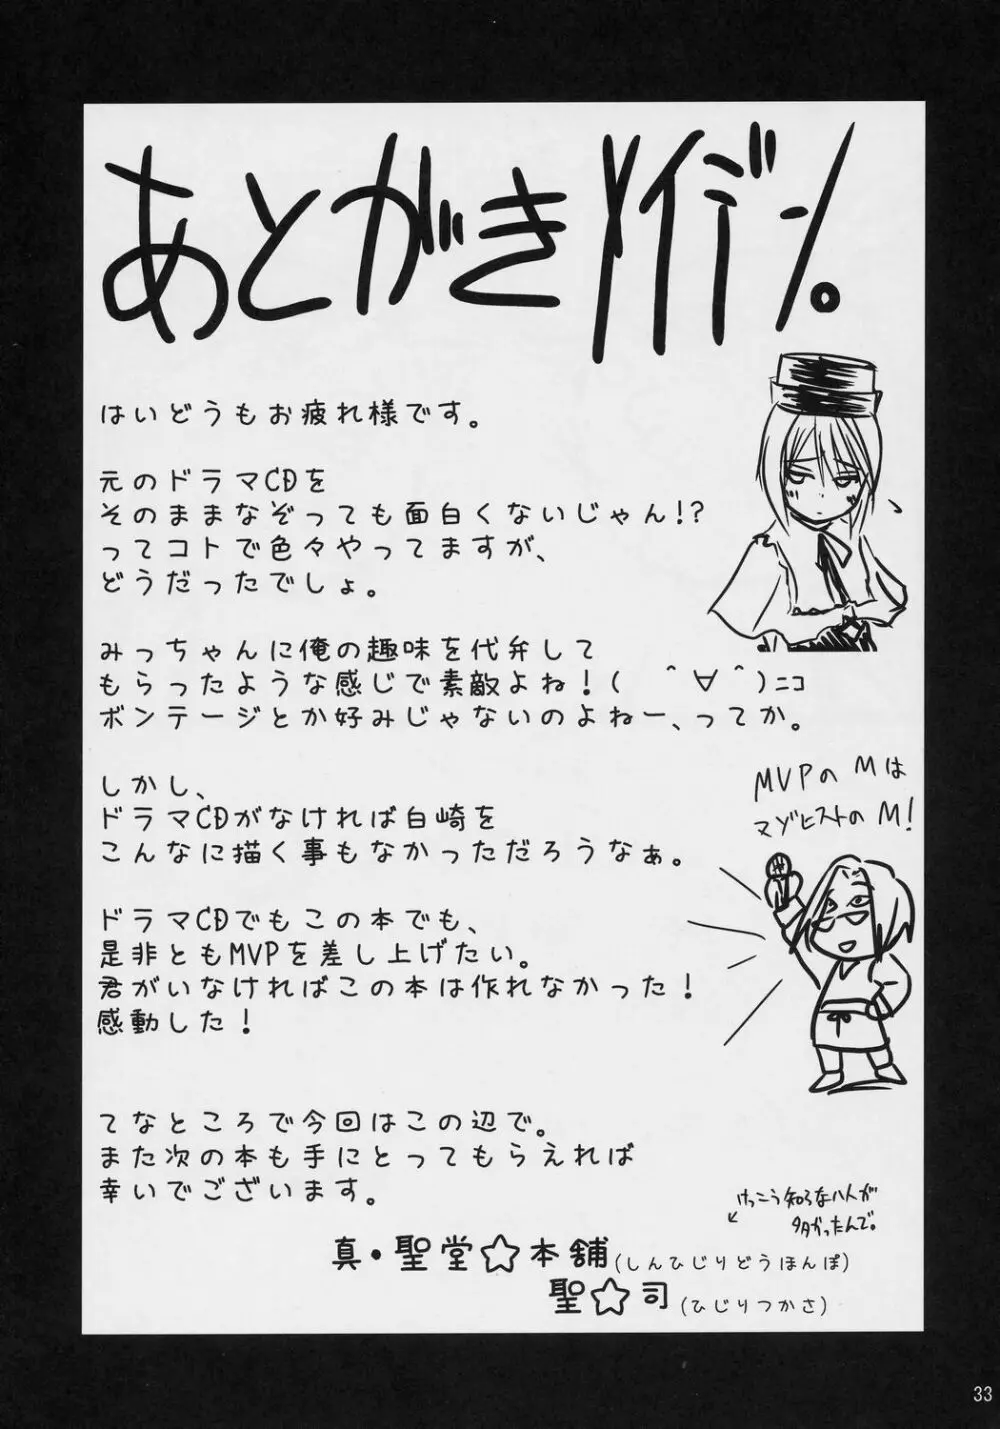 あとがきメイデン。
はいどうもお疲れ様です。
元のドラマCDを
そのままなぞっても面白くないじゃん!?
ってコトで色々やってますが、
どうだったでしょ。
みっちゃんに俺の趣味を代弁して
もらったような感じで素敵よね!( ＾∀＾)ニコ
ボンテージとか好みじゃないのよねー、ってか。
しかし、
ドラマCDがなければ白崎を
こんなに描く事もなかっただろうなぁ。
MVPのMは
マゾヒストのM!
ドラマCDでもこの本でも、
是非ともMVPを差し上げたい。
君がいなければこの本は作れなかった!
感動した!
てなところで今回はこの辺で。
また次の本も手にとってもらえれば
幸いでございます。
けっこう知らない人が
多かったんで。
真・聖堂☆本舗(しんひじりどうほんぽ)
聖☆司(ひじりつかさ)
33